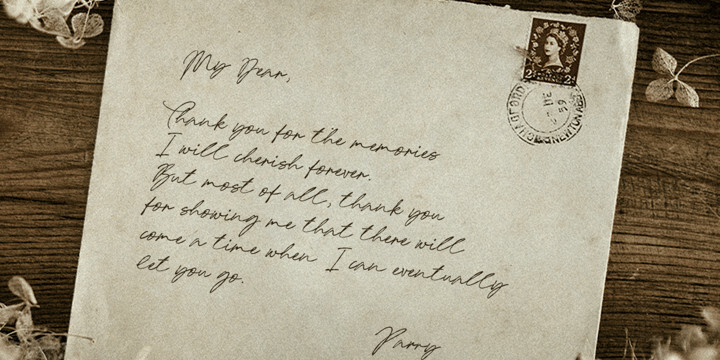 My Dear,
Thank you for the memories
I will cherish forever.
But most of all, thank you
for showing me that there will
come a time when I can eventually
let you go.
Parry